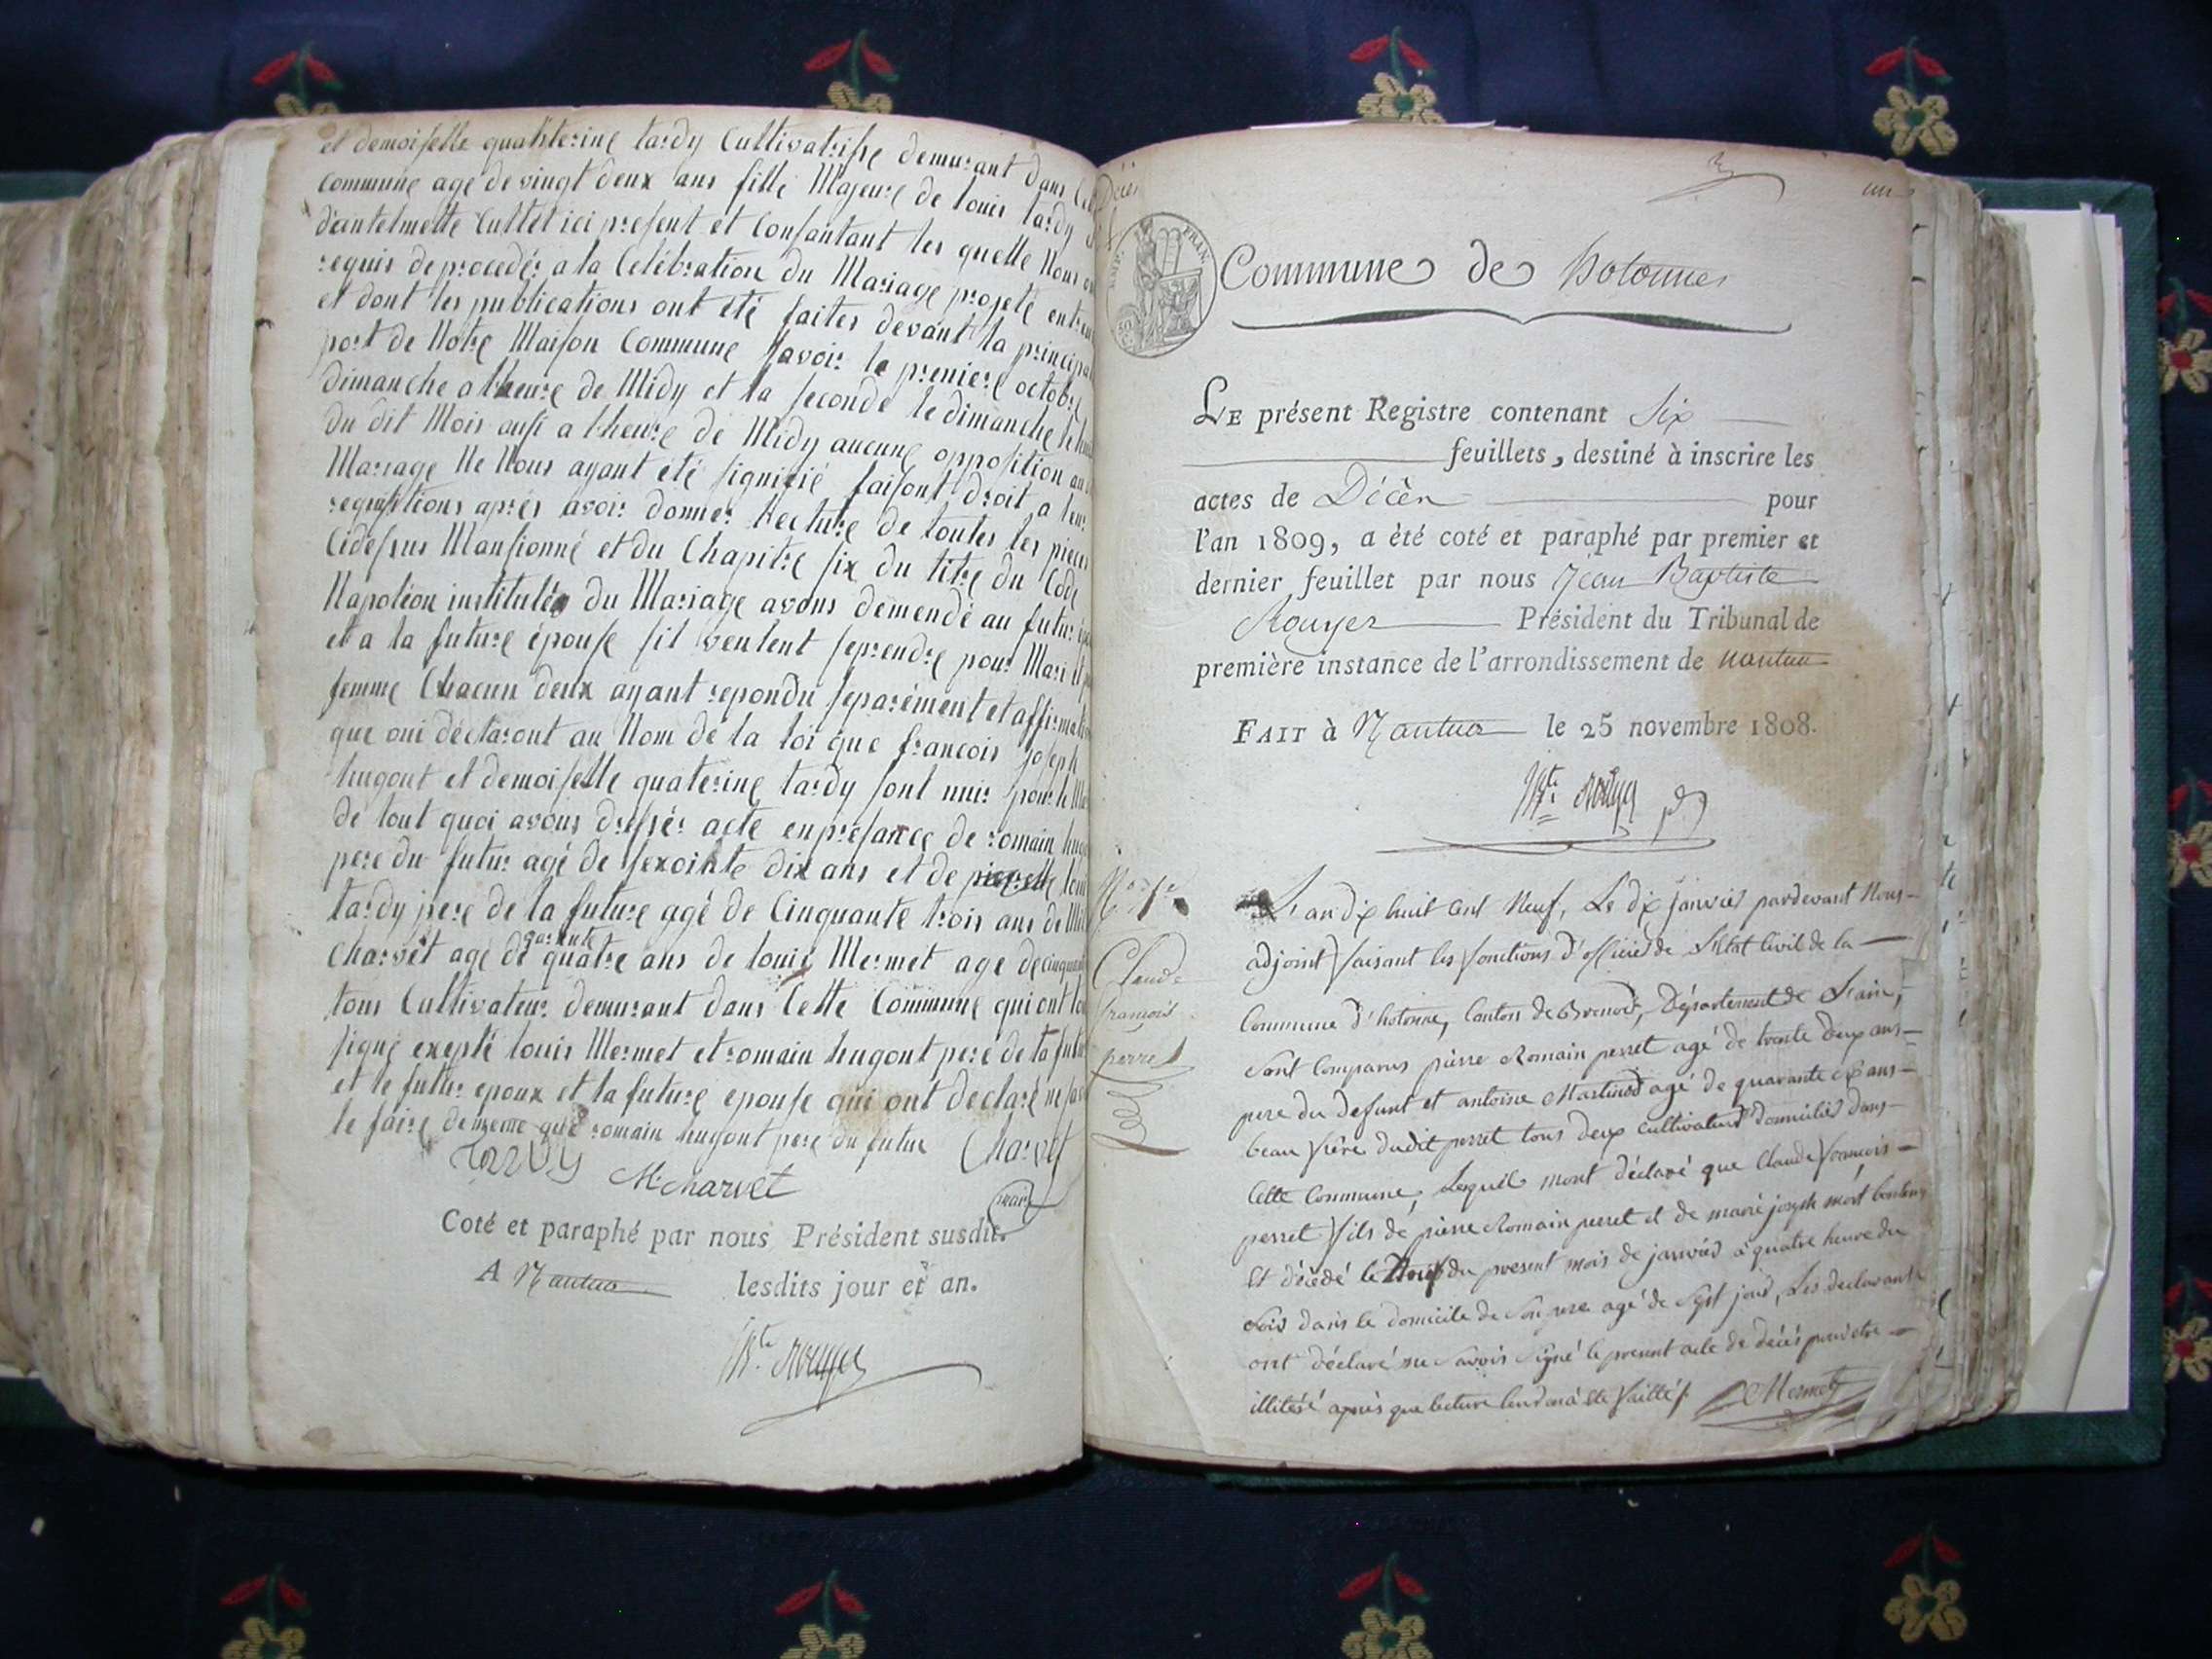 et demoiselle quatherine tardy Cultivatrisse demurant dans
commune age de vingt deux ans fille Majeure de louis tardy
d'antelmette Cultet ici present et Consantant les quelle Nous
requis de proceder a la Celébration du Mariage projeté
et dont les publications ont été faites devant la
port de Notre Maison Commune savoir le premiere octobre
dimanche a lheure de Midy et la seconde le dimanche
du dit Mois ausi a lheure de Midy aucune opposition au
Mariage Ne Nous ayant été signifié faisont droit a leur
requisitions aprés avoir donner Lecture de toutes les pieces
Cidessus Mansionné et du Chapitre six du titre du Code
Napoléon institulée du Mariage avons demendé au futur
et a la future épouse sil veulent seprendre pour Mari et
femme Chacun deux ayant repondu separément et
que oui déclaront au Nom de la loi que francois joseph
hugont et demoiselle quaterine tardy sont unis pour le
de tout quoi avons dressér acte enpresance de romain
pere du futur agé de sexointe dix ans et de
tardy pere de la future agé de Cinquante trois ans de
Charvet age de quarante quatre ans de louis Mermet age de
tous Cultivateur demurant dans Cette Commune qui ont
signé exepté louis Mermet et romain hugont pere de la
et le futur epoux et la future epouse qui ont declaré ne
le faire dememe que romain hugont pere du futur Charvet
TARDY M Charvet
maire
Coté et paraphé par nous Président susdit.
A Nantua lesdits jour et an.
Bte Rouyer
Décès
un
EMP. FRAN.
Commune de hotonnes
LE présent Registre contenant Six
feuillets, destiné à inscrire les
actes de Décès pour
l'an 1809, a été coté et paraphé par premier et
dernier feuillet par nous Jean Baptiste
Rouyer Président du Tribunal de
première instance de l'arrondissement de nantua
FAIT à Nantua le 25 novembre 1808.
Bte Rouyer
N° 1er
Claude
francois
perret
L'an dix huit cent Neuf, Le dix janvier pardevant Nous
adjoint faisant les fonctions d'officier de l'Etat Civil de la
Commune d'hotonne, Canton de Brenod, Département de L'ain,
Sont Comparus pierre Romain perret agé de trente deux ans
pere du defunt et antoine Martinod agé de quarante six ans
beau frére dudit perret tous deux cultivateurs domiciliés dans
Cette Commune, Lesquels mont déclaré que Claude francois
perret fils de pierre Romain perret et de marie joseph
Et décedé le Neuf du present mois de janvier à quatre heure du
Soir dans le domicile de Son pere agé de Sept jour, Les declarants
ont déclaré ne Savoir Signé le present acte de décès pour etre
illitéré après que lecture leur ena été faitte /. Mermet